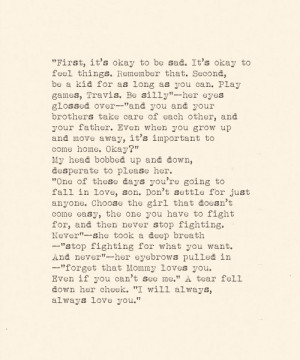 "First, it's okay to be sad. It's okay to
feel things. Remember that. Second,
be a kid for as long as you can. Play
games, Travis. Be silly"—her eyes
glossed over—"and you and your
brothers take care of each other, and
your father. Even when you grow up
and move away, it's important to
come home. Okay?"
My head bobbed up and down,
desperate to please her.
"One of these days you're going to
fall in love, son. Don't settle for just
anyone. Choose the girl that doesn't
come easy, the one you have to fight
for, and then never stop fighting.
Never"—she took a deep breath
—"stop fighting for what you want.
And never"—her eyebrows pulled in
—"forget that Mommy loves you.
Even if you can't see me." A tear fell
down her cheek. "I will always,
always love you."